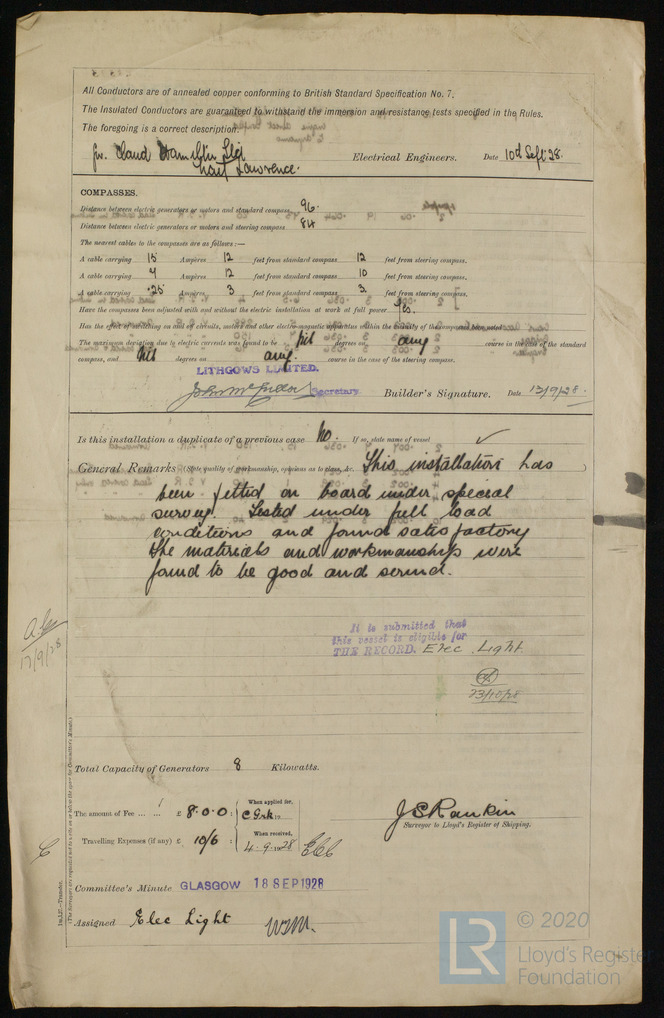 All Conductors are of annealed copper conforming to British Standard Specification No. 7.
The Insulated Conductors are guaranteed to withstand the immersion and resistance tests specified in the Rules.
The foregoing is a correct description.
Claud Hamilton Ltd
Lawrence. Electrical Engineers. Date 10th Sept 28.
COMPASSES.
Distance between electric generators or motors and standard compass 96
Distance between electric generators or motors and steering compass 84
The nearest cables to the compasses are as follows:—
A cable carrying 15 Ampères 12 feet from standard compass 12 feet from steering compass.
A cable carrying 4 Ampères 12 feet from standard compass 10 feet from steering compass.
A cable carrying .25 Ampères 3 feet from standard compass 3 feet from steering compass.
Have the compasses been adjusted with and without the electric installation at work at full power Yes.
Has the effect of switching on and off circuits, motors and other electro-magnetic apparatus within the vicinity of the compasses been noted
The maximum deviation due to electric currents was found to be Nil degrees on any course in the case of the standard
compass, and Nil degrees on any course in the case of the steering compass.
LITHGOWS LIMITED.
Secretary Builder's Signature. Date 13/9/28.
Is this installation a duplicate of a previous case No. If so, state name of vessel
General Remarks (State quality of workmanship, opinions as to class, &c. This installation has
been fitted on board under special
survey. Tested under full load
conditions and found satisfactory
The materials and workmanship were
found to be good and sound.
17/9/28
It is submitted that
this vessel is eligible for
THE RECORD. Elec. Light.
23/10/28
Total Capacity of Generators 8 Kilowatts.
The amount of Fee ... ... £ 8.0.0 : When applied for,
J S Rankin
Surveyor to Lloyd's Register of Shipping.
Travelling Expenses (if any) £ 10/6 : When received,
4.9.1928
Committee's Minute GLASGOW 18 SEP 1928
Assigned Elec Light
1m,1.27.—Transfer.
(The Surveyors are requested not to write on or below the space for Committee's Minute.)
LR
© 2020
Lloyd's Register
Foundation